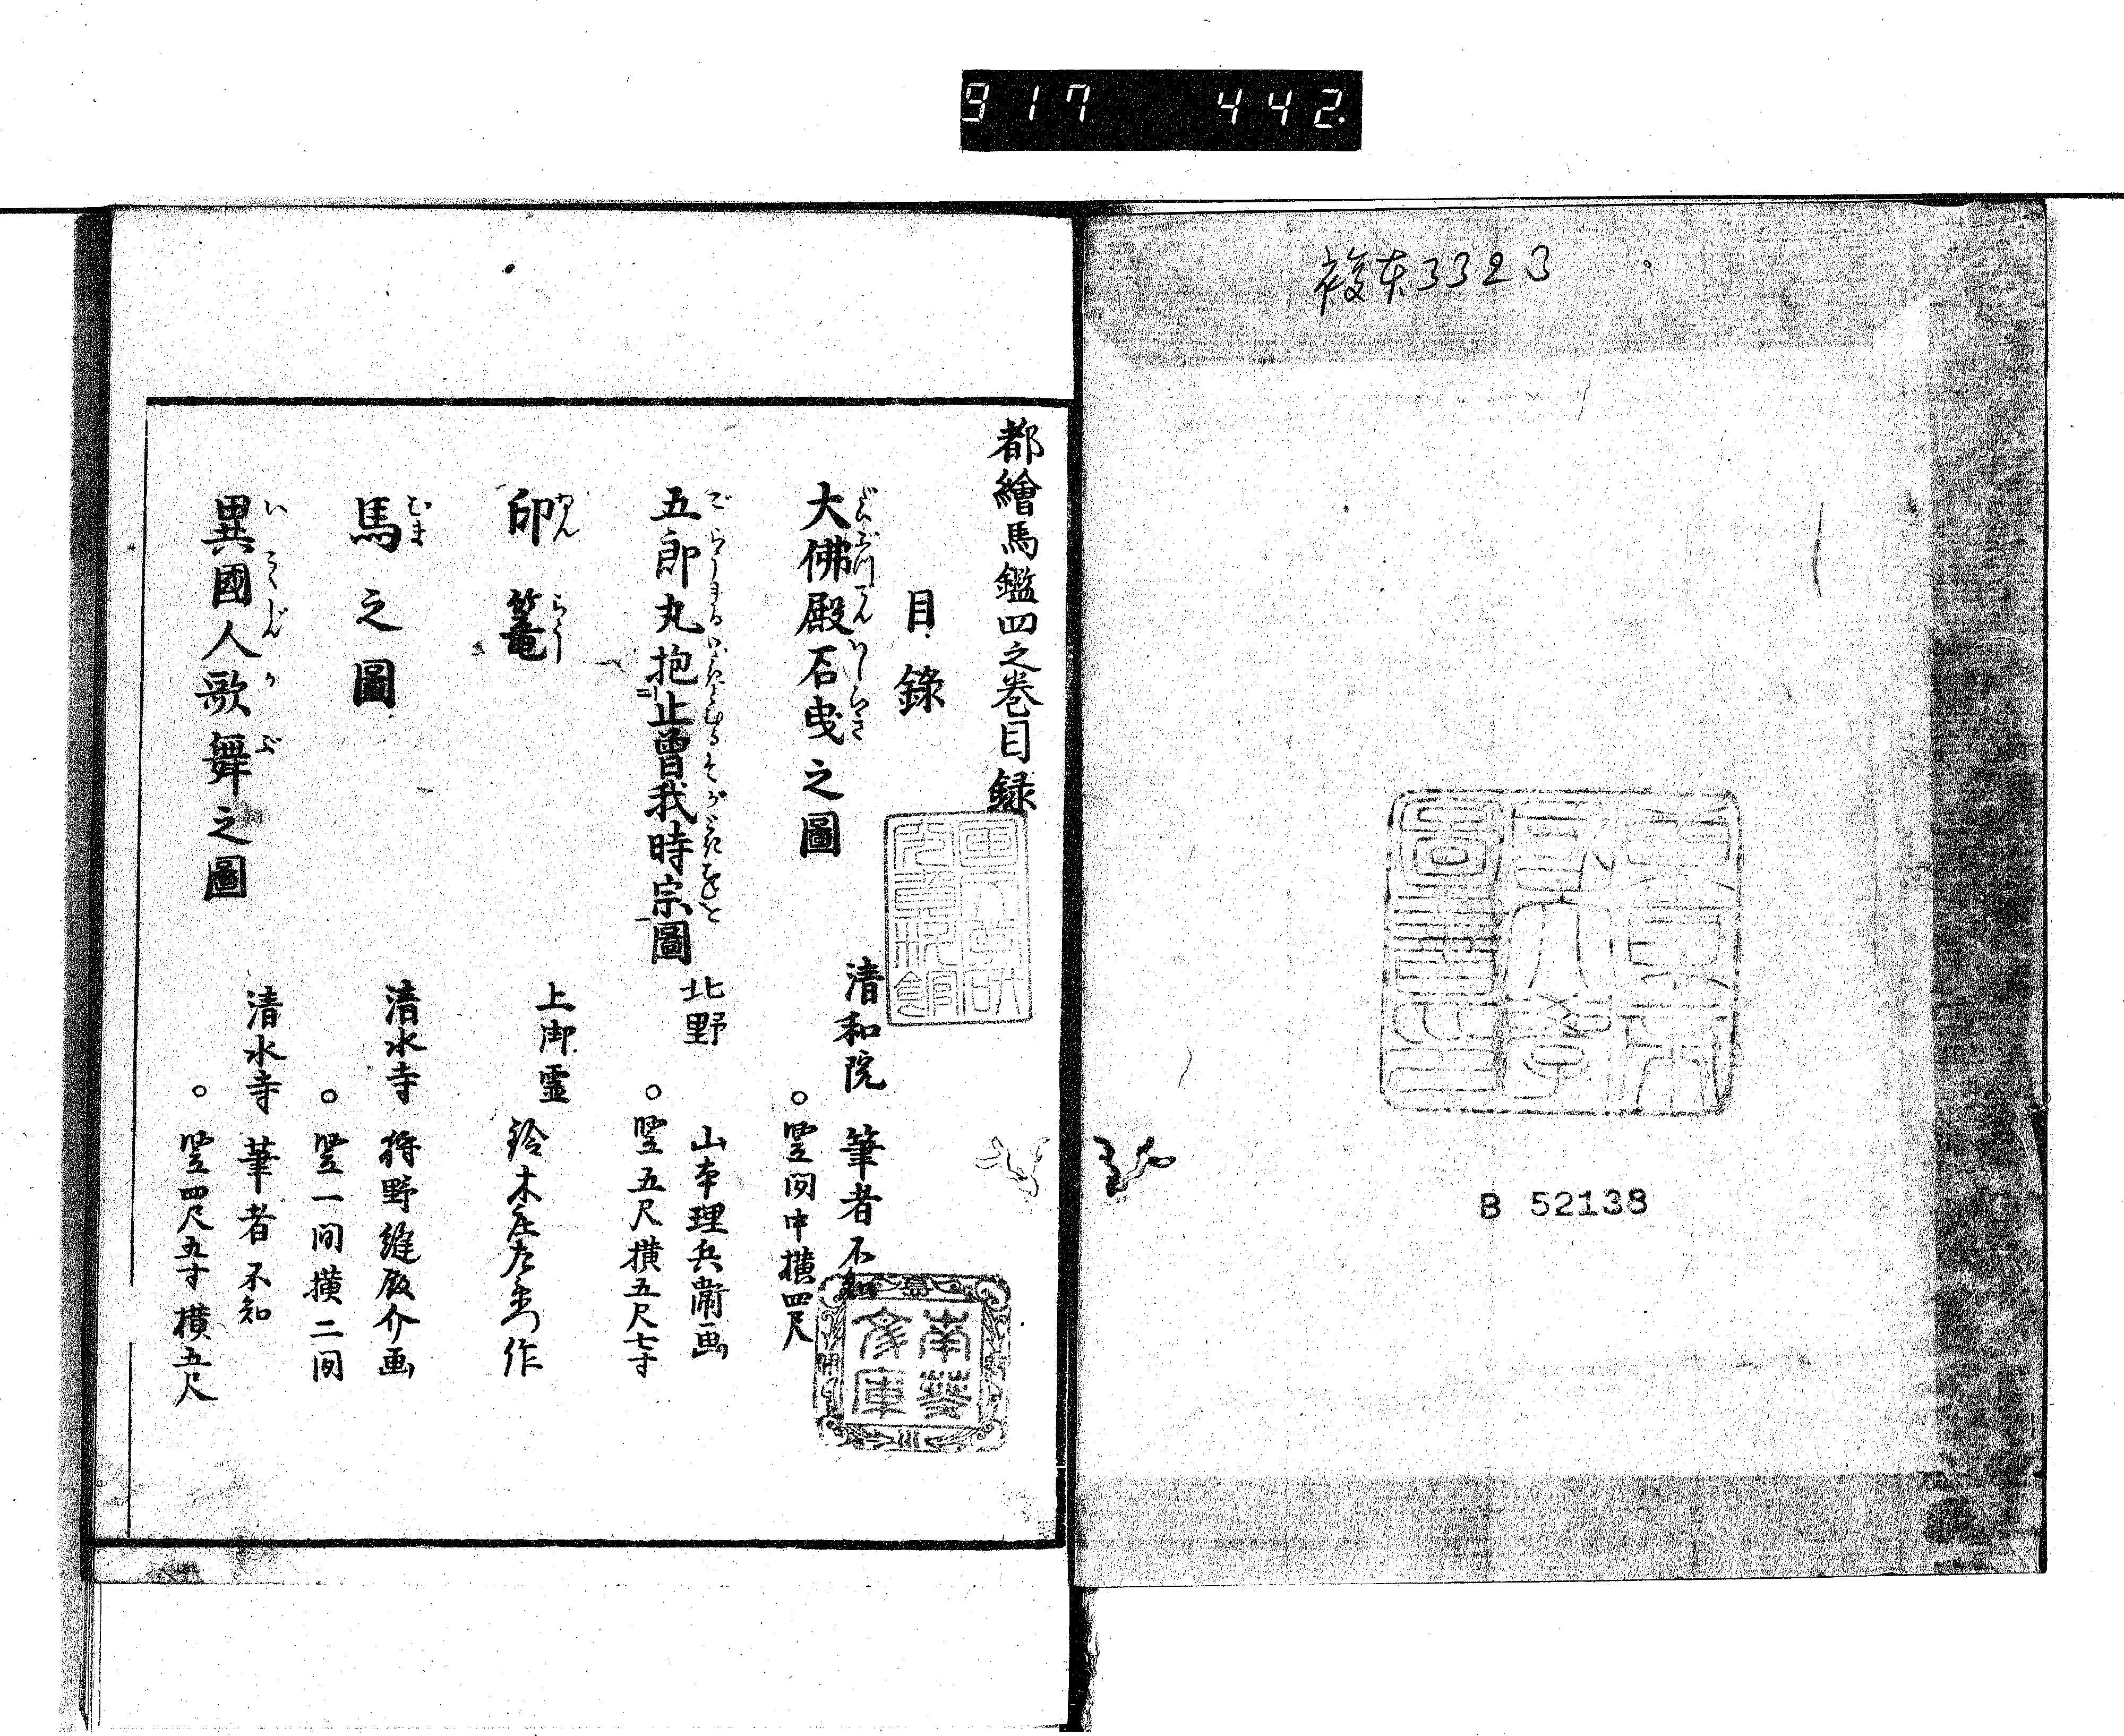 917 442.
複東3323
B 52138
都繪馬鑑四之巻目録
目錄
大佛殿石曳之圖
清和院 筆者不知
。竪間中横四尺
五郎丸抱止曽我時宗圖
北野 山本理兵衛画
。竪五尺横五尺七寸
印篭
いんらう
上御霊 鈴木庄左衛門作
馬之圖
むま
清水寺 狩野縫殿介画
。竪一間横二間
異國人歌舞之圖
いこくじんかぶ
清水寺 筆者不知
。竪四尺九寸横五尺
南葵文庫